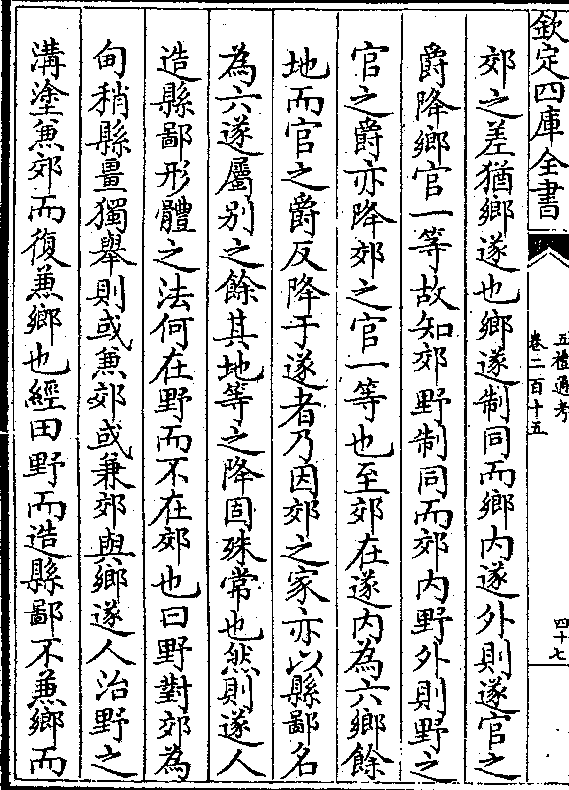 欽定四庫全書
五禮通考
卷二百十五
四十七
郊之差猶鄉遂也鄉遂制同而鄉内遂外則遂官之
爵降鄉官一等故知郊野制同而郊内野外則野之
官之爵亦降郊之官一等也至郊在遂内為六鄉餘
地而官之爵反降于遂者乃因郊之家亦以縣鄙名
為六遂屬别之餘其地等之降固殊常也然則遂人
造縣鄙形體之法何在野而不在郊也曰野對郊為
甸稍縣畺獨舉則或兼郊或兼郊與鄉遂人治野之
溝塗兼郊而復兼鄉也經田野而造縣鄙不兼鄉而